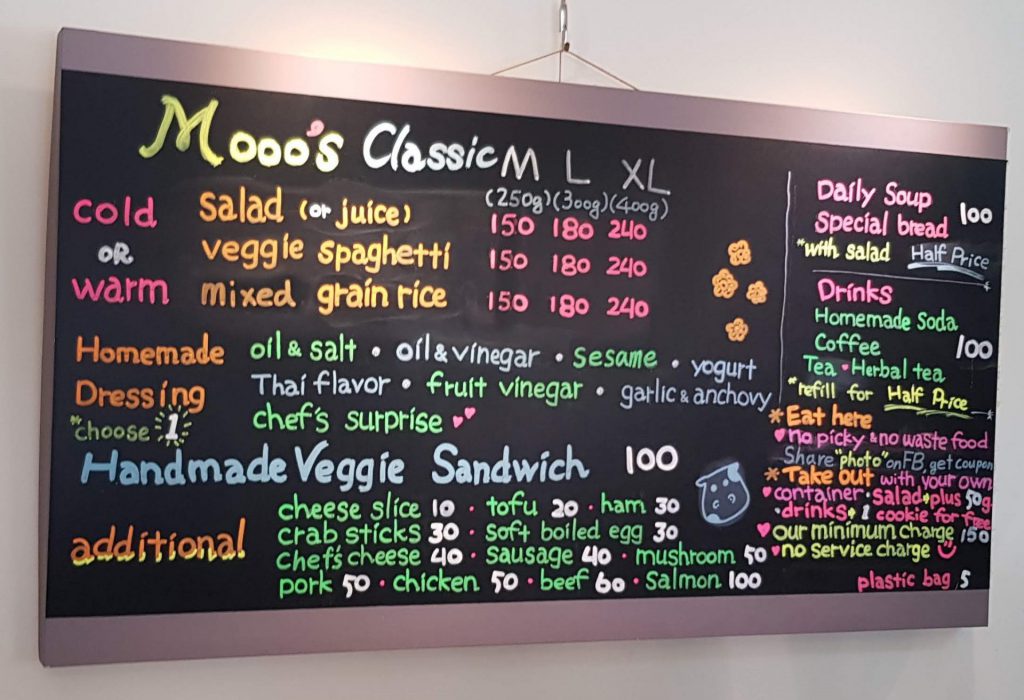 Mooo's Classic M L XL
(250g) (300g) (400g)
cold OR warm
salad (or juice) 150 180 240
veggie spaghetti 150 180 240
mixed grain rice 150 180 240
Homemade Dressing
*choose 1
oil & salt • oil & vinegar • sesame • yogurt
Thai flavor • fruit vinegar • garlic & anchovy
chef's surprise
Handmade Veggie Sandwich 100
additional
cheese slice 10 • tofu 20 • ham 30
crab sticks 30 • soft boiled egg 30
Chef's cheese 40 • sausage 40 • mushroom 50
pork 50 • chicken 50 • beef 60 • salmon 100
Daily Soup
Special bread 100
*with salad Half Price
Drinks
Homemade Soda
Coffee 100
Tea • Herbal tea
*refill for Half Price
*Eat here
no picky & no waste food
Share "photo" on FB, get coupon
*Take out with your own
container • salad plus 50g
• drinks 1 cookie for free
our minimum charge 150
no service charge
plastic bag 5